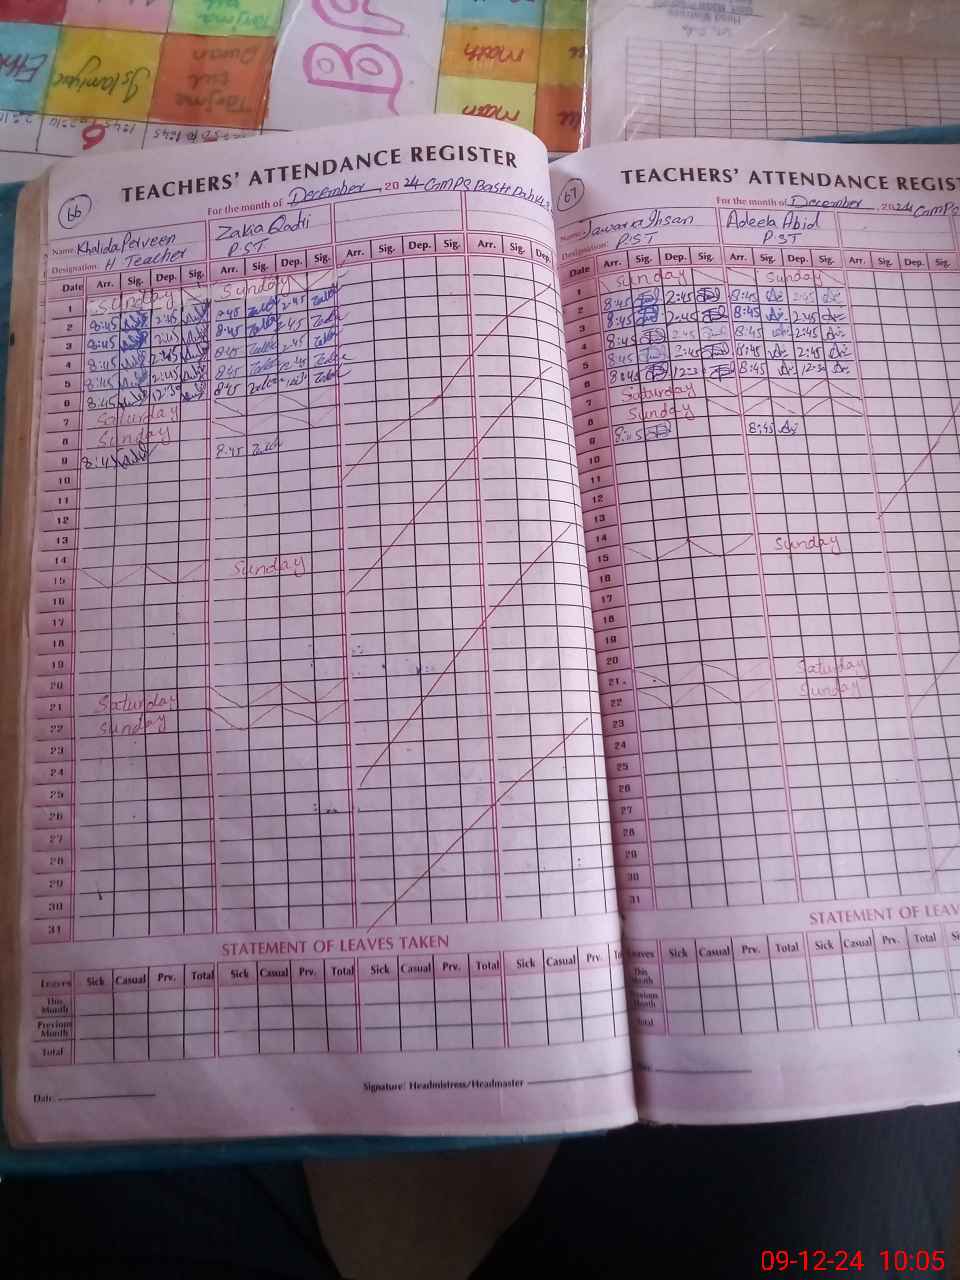 Tarjma
Quran
Islamiyat
math
math
TEACHERS' ATTENDANCE REGISTER
66
For the month of December, 2024 GMPS Basti
Name: Khalida Perveen Zakia Qadri
Designation: H Teacher PST
Date Arr. Sig. Dep. Sig. Arr. Sig. Dep. Sig. Arr. Sig. Dep. Sig. Arr. Sig. Dep.
1 Sunday Sunday
2 8:45 2:45 8:45 2:45
3 8:45 2:45 8:45 2:45
4 8:45 2:45 8:45 2:45
5 8:45 2:45 8:45 2:45
6 8:45 12:30 8:45 12:30
7 Saturday
8 Sunday
9 8:45 8:45
10
11
12
13
14
15 Sunday
16
17
18
19
20
21 Saturday
22 Sunday
23
24
25
26
27
28
29
30
31
STATEMENT OF LEAVES TAKEN
Leaves Sick Casual Prv. Total Sick Casual Prv. Total Sick Casual Prv. Total Sick Casual Prv.
This Month
Previous Month
Total
Date: Signature: Headmistress/Headmaster
TEACHERS' ATTENDANCE REGIST
67
For the month of December, 2024 GMPS
Name: Jawaria Ihsan Adeela Abid
Designation: PST PST
Date Arr. Sig. Dep. Sig. Arr. Sig. Dep. Sig. Arr. Sig. Dep. Sig.
1 Sunday Sunday
2 8:45 2:45 8:45 2:45
3 8:45 2:45 8:45 2:45
4 8:45 2:45 8:45 2:45
5 8:45 2:45 8:45 2:45
6 8:45 12:30 8:45 12:30
7 Saturday
8 Sunday
9 8:45 8:45
10
11
12
13
14
15 Sunday
16
17
18
19
20
21 Saturday
22 Sunday
23
24
25
26
27
28
29
30
31
STATEMENT OF LEAV
Leaves Sick Casual Prv. Total Sick Casual Prv. Total
This Month
Previous Month
Total
09-12-24 10:05